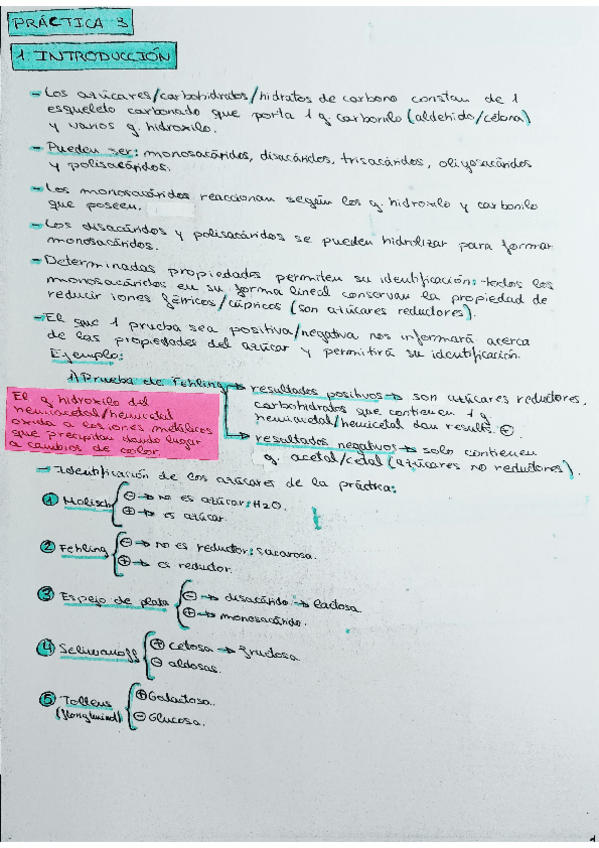 PRÁCTICA 3
1. INTRODUCCIÓN
- Los azúcares/carbohidratos/hidratos de carbono constan de 1
esqueleto carbonado que porta 1 g. carbonilo (aldehído/cetona)
y varios g. hidroxilo.
- Pueden ser: monosacáridos, disacáridos, trisacáridos, oligosacáridos
y polisacáridos.
- Los monosacáridos reaccionan según los g. hidroxilo y carbonilo
que poseen.
- Los disacáridos y polisacáridos se pueden hidrolizar para formar
monosacáridos.
- Determinadas propiedades permiten su identificación: todos los
monosacáridos en su forma lineal conservan la propiedad de
reducir iones férricos/cúpricos (son azúcares reductores).
- El que 1 prueba sea positiva/negativa nos informará acerca
de las propiedades del azúcar y permitirá su identificación.
Ejemplo:
1) Prueba de Fehling → resultados positivos → son azúcares reductores,
carbohidratos que contienen 1 g.
hemiacetal/hemicetal dan result. ⊕.
→ resultados negativos → solo contienen
g. acetal/cetal (azúcares no reductores).
El g. hidroxilo del
hemiacetal/hemicetal
oxida a los iones metálicos
que precipitan dando lugar
a cambios de color.
- Identificación de los azúcares de la práctica:
① Molisch ⊖ → no es azúcar: H2O.
⊕ → es azúcar.
② Fehling ⊖ → no es reductor: sacarosa.
⊕ → es reductor.
③ Espejo de plata ⊖ → disacárido → lactosa
⊕ → monosacárido.
④ Seliwanoff ⊕ cetosa → fructosa.
⊖ aldosas.
⑤ Tollens ⊕ Galactosa.
⊖ Glucosa.
1